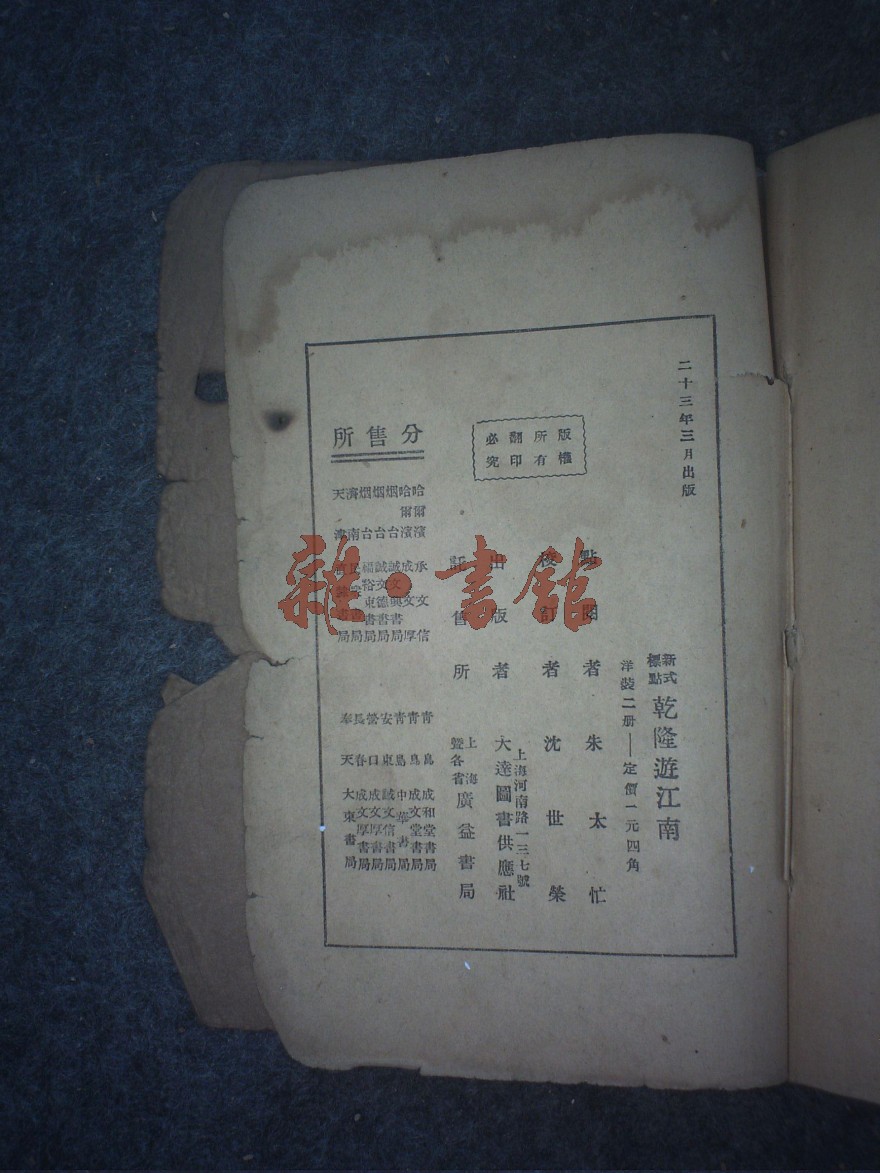 二十三年三月出版
新式標點
乾隆遊江南
洋裝二册—定價一元四角
版權所有
翻印必究
點閱者 朱太忙
校訂者 沈世榮
出版者 大達圖書供應社
上海河南路一三七號
託售所 上海曁各省 廣益書局
分售所
哈爾濱 承文信
哈爾濱 成文厚
烟台 誠文興書局
烟台 誠文德書局
烟台 福裕東書局
濟南 書局
天津 書局
青島 成和堂書局
青島 成文堂書局
青島 中華書局
安東 誠文信書局
營口 成文厚書局
長春 成文厚書局
奉天 大東書局
雜·書館